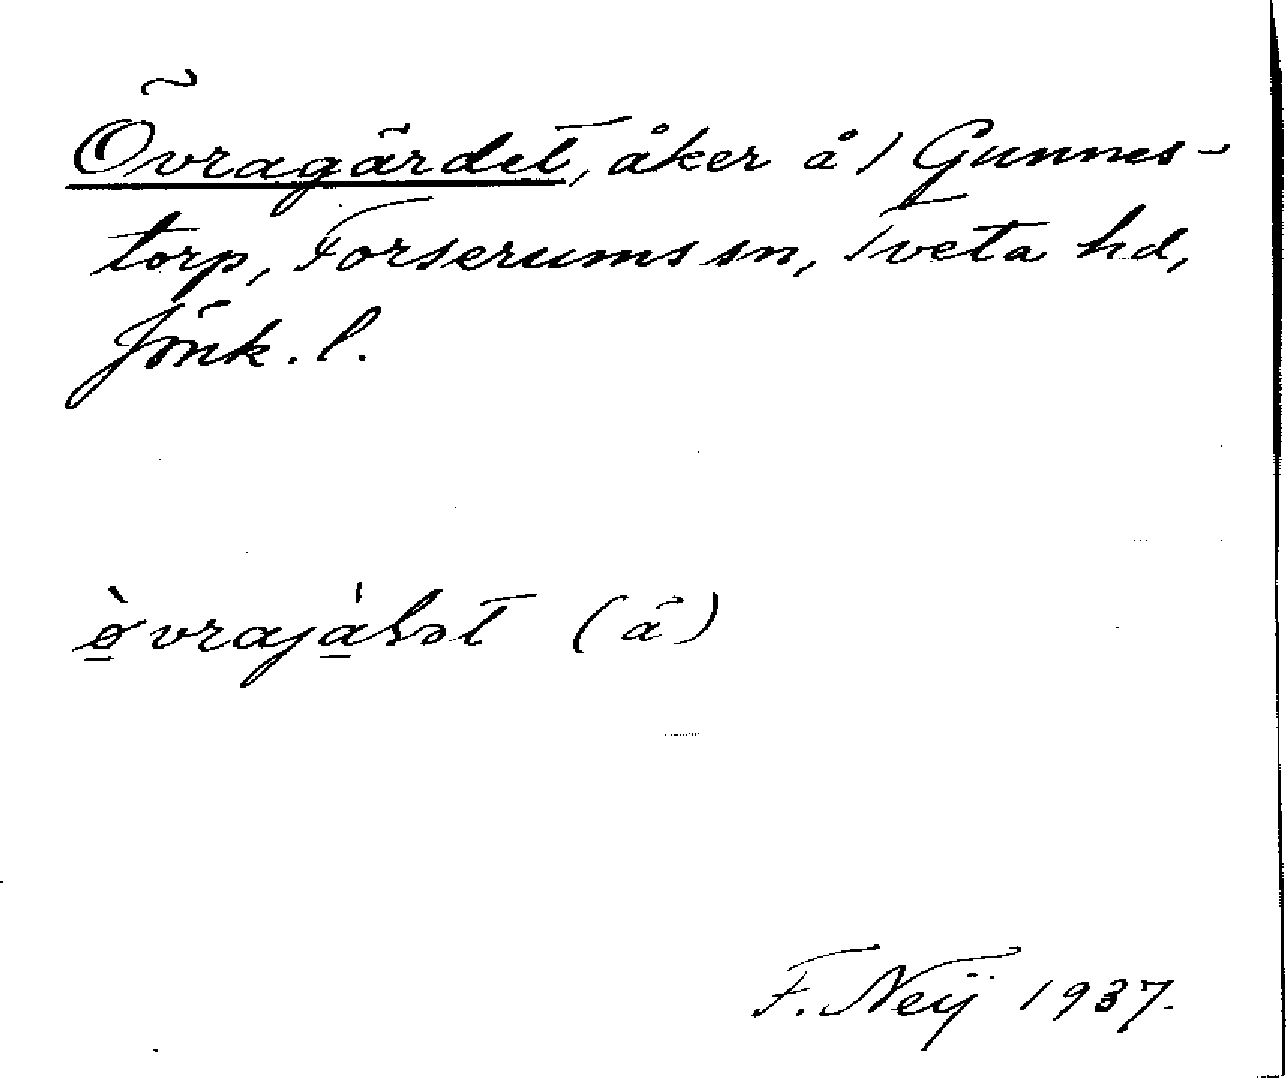 Övragärdet, åker å 1 Gunnes-
torp, Forserums sn, Tveta hd,
Jönk. l.
(å)
F. Neij 1937.